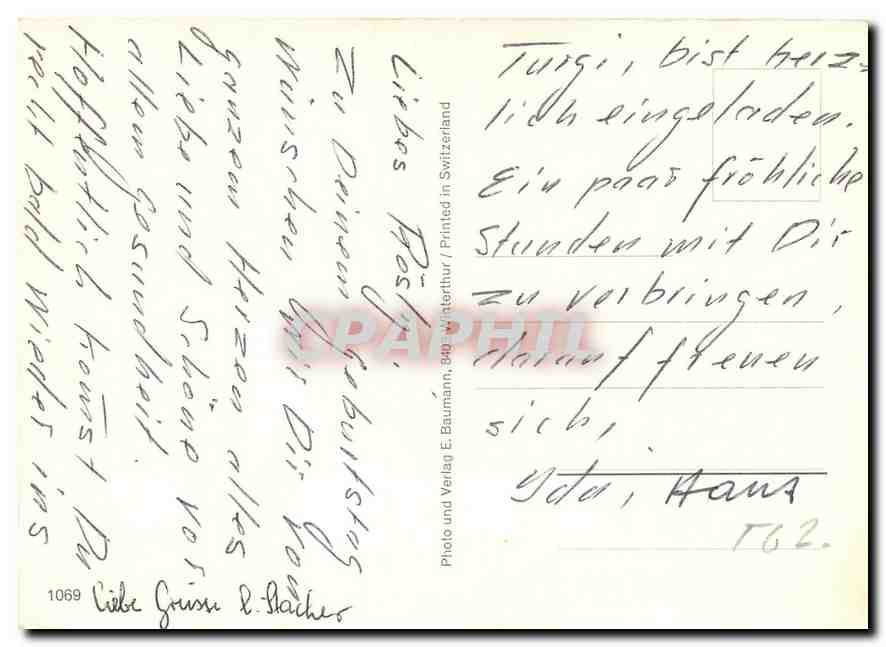 Liebes Rösly,
Zu Deinem Geburtstag
Wünschen Wir Dir von
ganzem Herzen alles
Liebe und Schöne vor
allem Gesundheit.
Hoffentlich kom̄st Du
recht bald Wieder ins
Turgi, bist herz-
lich eingeladen.
Ein paar fröhliche
Stunden mit Dir
zu verbringen,
darauf freuen
sich,
Ida, Hans
T62.
Photo und Verlag E. Baumann, Winterthur / Printed in Switzerland
1069
Liebe Grüsse
CPAPHIL